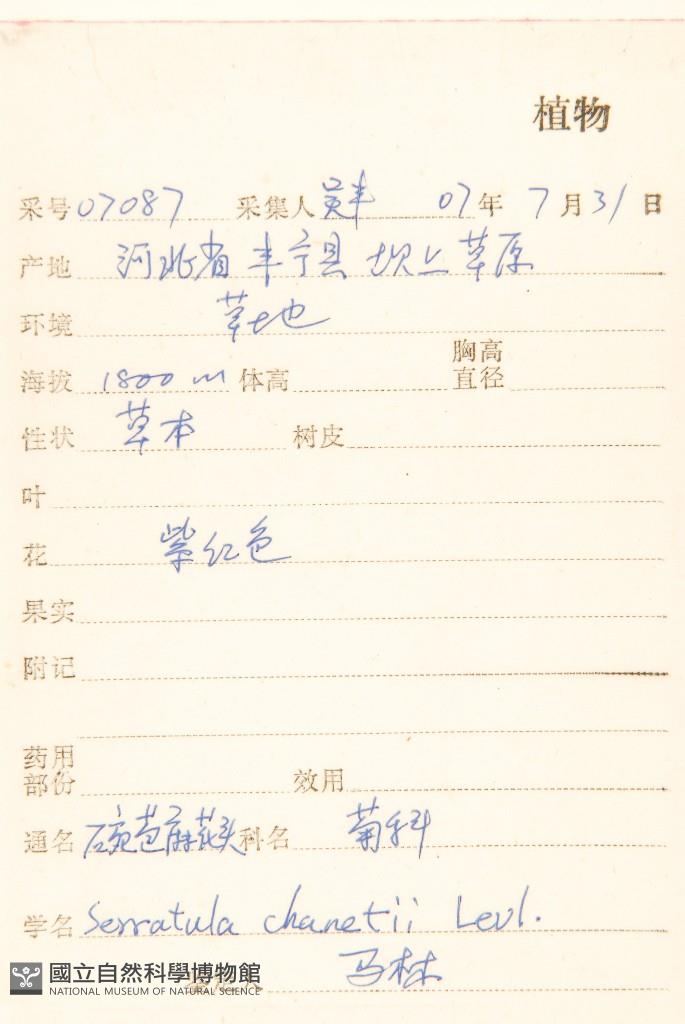 植物
采号 07087 采集人 吴丰 07年 7月 31日
产地 河北省 丰宁县 坝上草原
环境 草地
海拔 1800 m 体高 胸高直径
性状 草本 树皮
叶
花 紫红色
果实
附记
药用部份 效用
通名 碗苞麻花头 科名 菊科
学名 Serratula chanetii Levl.
马林
國立自然科學博物館
NATIONAL MUSEUM OF NATURAL SCIENCE